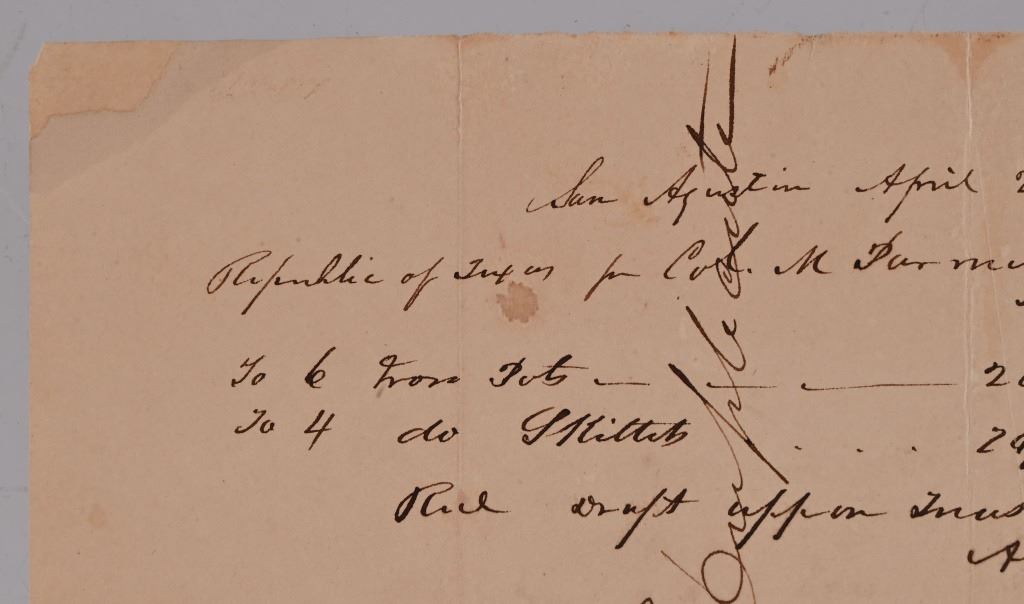 San Agustin April 2
Republic of Texas pr Col. M Parme
To 6 Iron Pots 2
To 4 do Skillets . . . 24
Recd draft uppon Treas
A
Duplicate